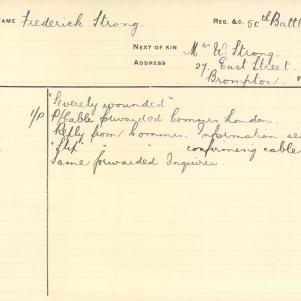 NAME Frederick Strong. REG. &C. 50th Battl
NEXT OF KIN Mr W. Strong.
ADDRESS 27 East Street.
Brompton.
"Severely wounded"
P/P P/Cable forwarded Commrs London.
Reply from Commrs. Information
"Slip" " " confirming cable
Same forwarded Inquirer.